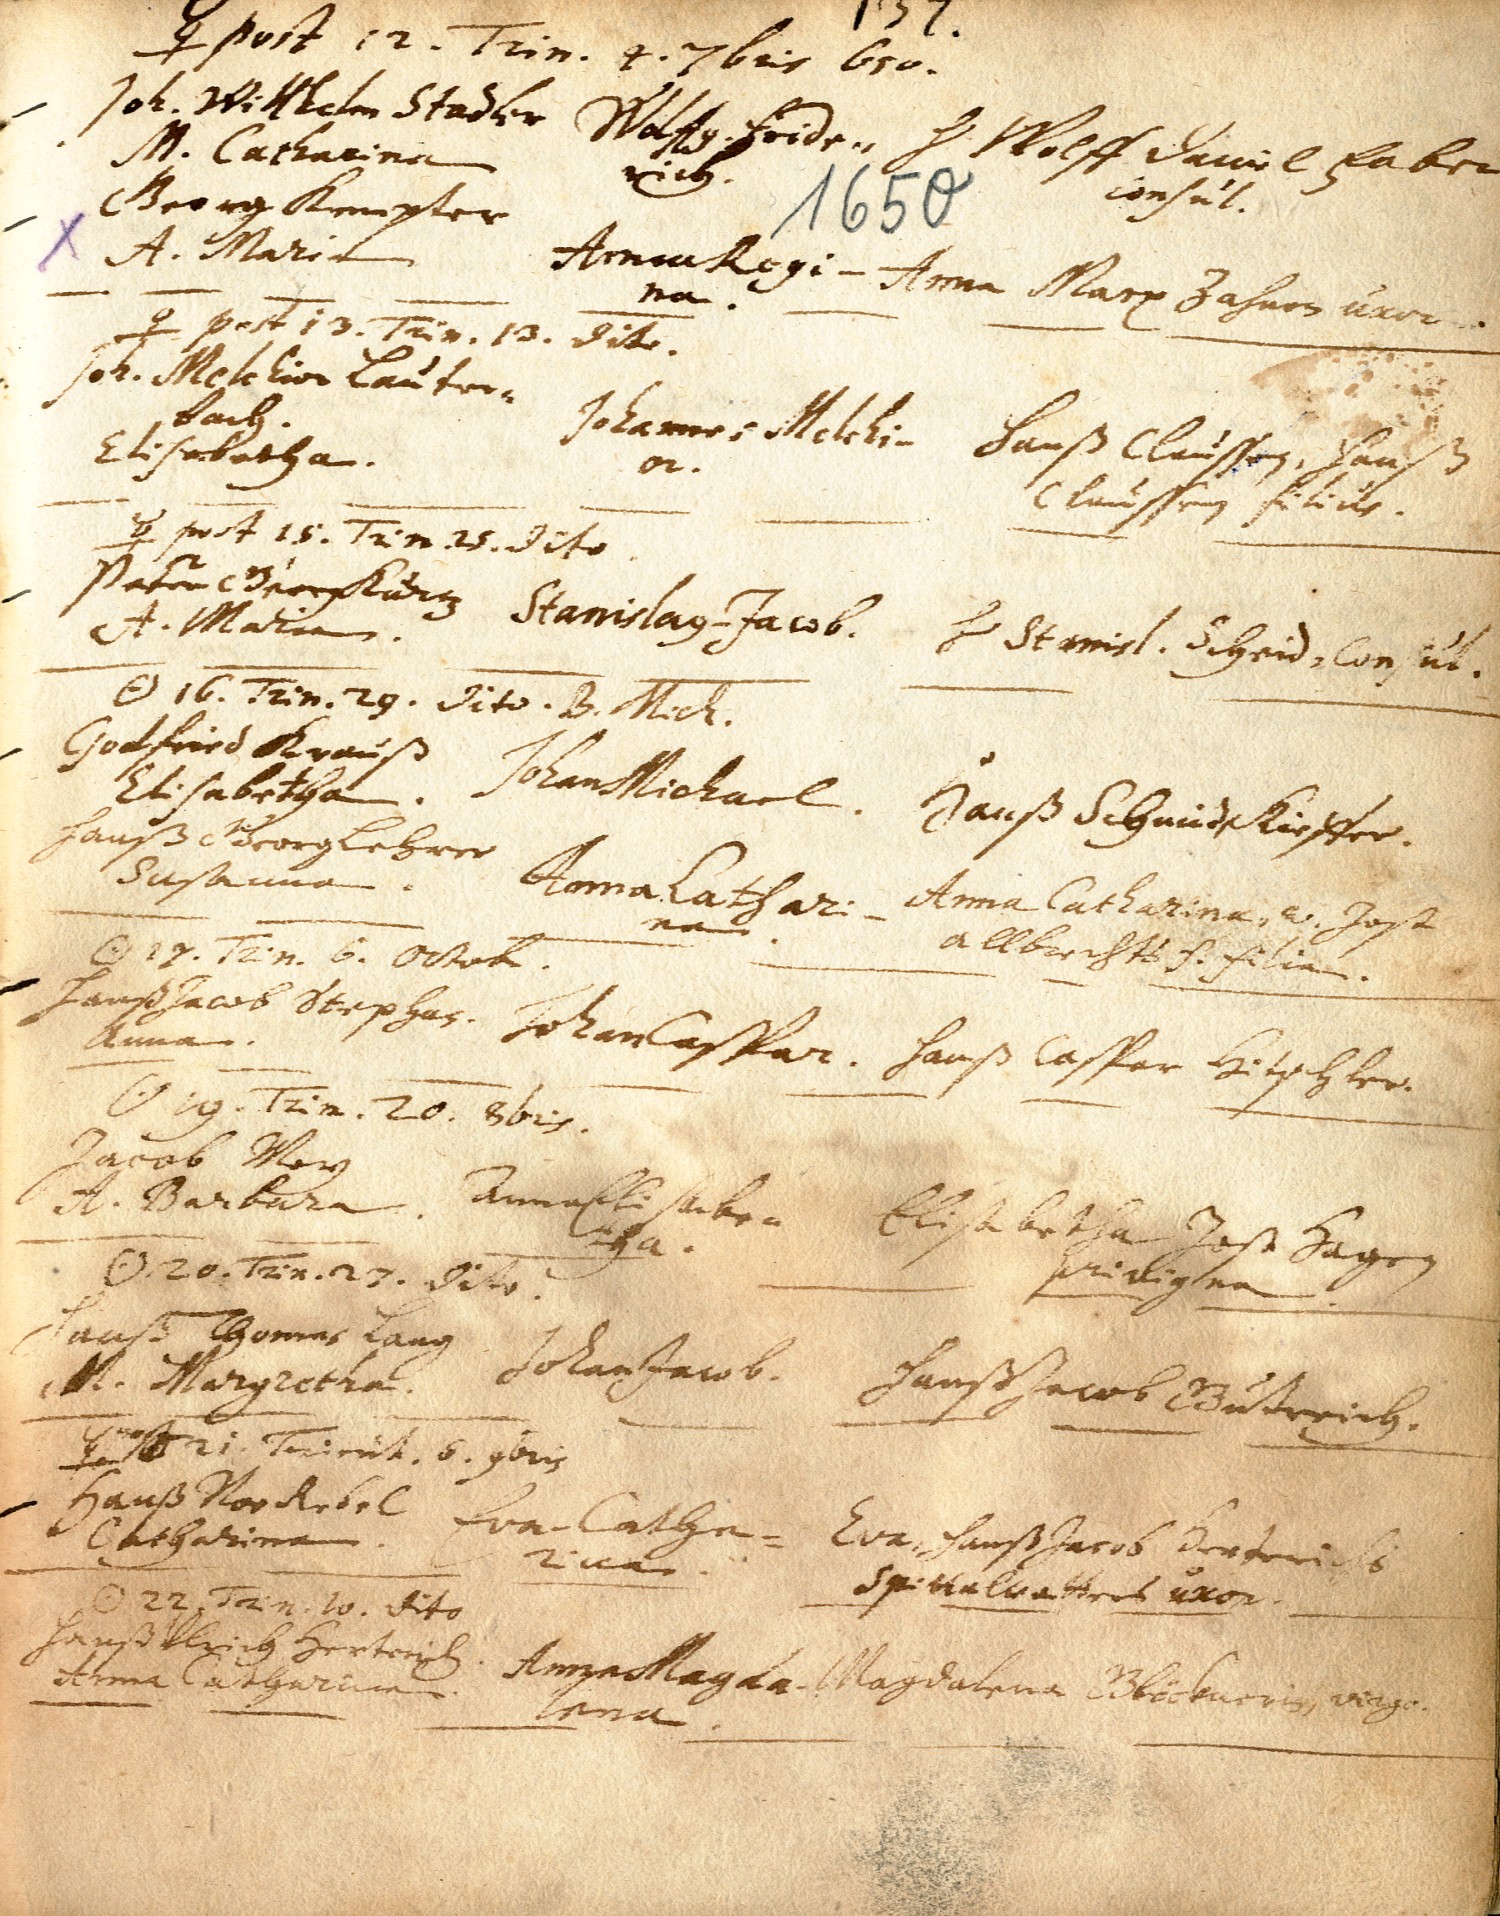 137.
☿ post 12. Trin. 4. 7bris 650.
Joh. Wilhelm Stadler Wolffg. Fride- H. Wolff Daniel Faber
M. Catharina rich. Consul.
1650
Georg Kempter
A. Maria Anna Regi- Anna Marx Zahnen uxor.
na.
♀ post 13. Trin. 13. dito.
Joh. Melchior Lauter-
bach. Johannes Melchi- Hanß Claussen, Hanß
Elisabetha. or. Claussen filius.
☿ post 15. Trin. 25. dito
Georg Kurtz Stanislaus-Jacob. H Stanisl. Scheid, Consul.
A. Maria.
☉ 16. Trin. 29. dito. B. Mich.
Godfried Krauß Johan Michael. Hanß Schmidt Kieffer.
Elisabetha.
Hanß Georg Lehrer Anna Cathari- Anna Catharina, w. Jost
Susanna. na. Allbrechts f. filia.
☉ 17. Trin. 6. Octob.
Hanß Jacob Stephan. Johan Casspar. Hanß Casspar
Anna.
☉ 19. Trin. 20. 8bris.
Jacob Mey
A. Barbara. Anna Elisabe- Elisabetha Jost Hagen
tha. privigna.
☉. 20. Trin. 27. dito.
Hanß Thomas Lang Johan Jacob. Hanß Jacob
M. Margretha.
☿ post 21. Trinit. 6. 9bris
Hanß Rebel Eva-Catha- Eva, Hanß Jacob
Catharina. rina. Spittalvatters uxor.
☉ 22. Trin. 10. dito
Hanß Ulrich Hertrich. Anna Magda- Magdalena virgo.
Anna Catharina. lena.